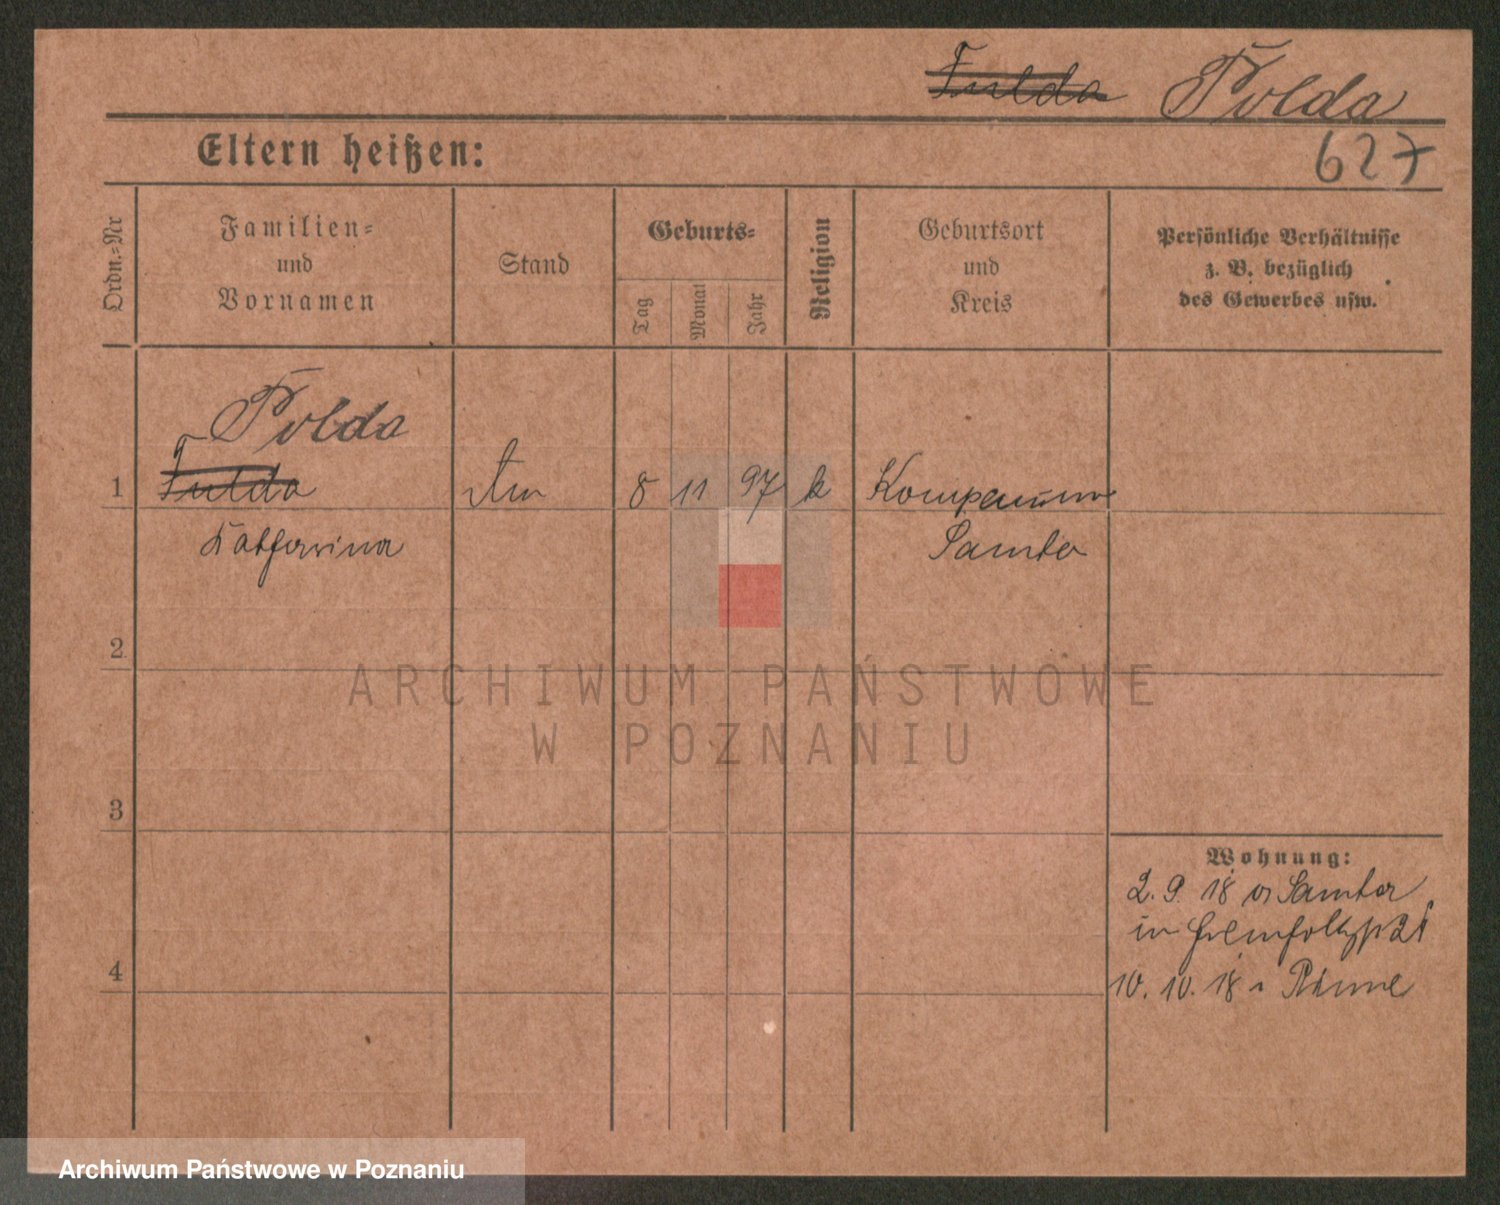 Fulda Tolda
627
Eltern heißen:
Ordn.=Nr
Familien=
und
Vornamen
Stand
Geburts=
Tag
Monat
Jahr
Religion
Geburtsort
und
Kreis
Persönliche Verhältnisse
z. B. bezüglich
des Gewerbes usw.
Tolda
1 Fulda 8 11 97 k
Katharina Samter
2
3
4
Wohnung:
2. 9. 18 Samter
in
10. 10. 18
ARCHIWUM PAŃSTWOWE
W POZNANIU
Archiwum Państwowe w Poznaniu